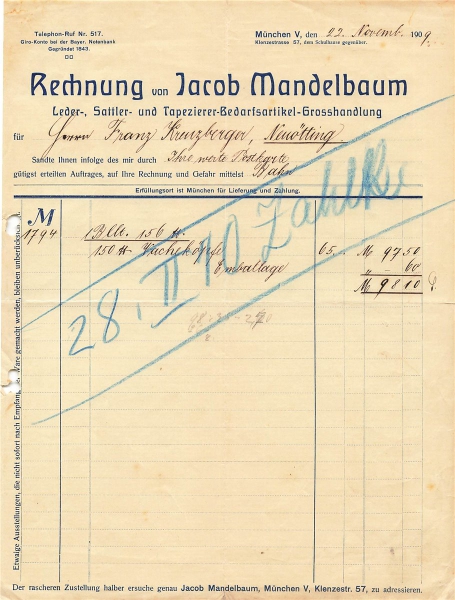 Telephon-Ruf Nr. 517.
Giro-Konto bei der Bayer. Notenbank
Gegründet 1843.
München V, den 22. Novemb. 1909.
Klenzestrasse 57, dem Schulhause gegenüber.
Rechnung von Jacob Mandelbaum
Leder-, Sattler- und Tapezierer-Bedarfsartikel-Grosshandlung
für Herrn Franz Kreuzberger, Neuötting
Sandte Ihnen infolge des mir durch Ihre werte Postkarte
gütigst erteilten Auftrages, auf Ihre Rechnung und Gefahr mittelst Bahn
Erfüllungsort ist München für Lieferung und Zahlung.
M
1794 1 Blle. 156 ℔.
150 ℔ 65. M 97 50
Emballage " 60
M 98 10
28. II 10
Etwaige Ausstellungen, die nicht sofort nach Empfang der Ware gemacht werden, bleiben unberücksichtigt.
Der rascheren Zustellung halber ersuche genau Jacob Mandelbaum, München V, Klenzestr. 57, zu adressieren.